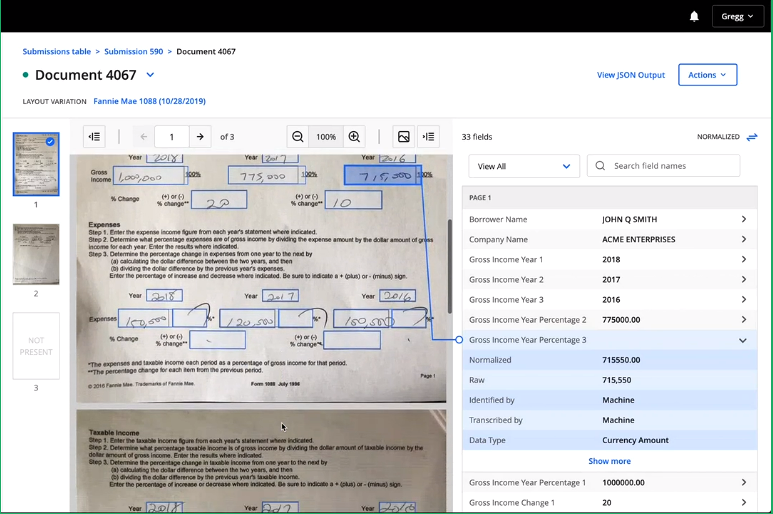 Gregg
Submissions table > Submission 590 > Document 4067
Document 4067
View JSON Output
Actions
LAYOUT VARIATION Fannie Mae 1088 (10/28/2019)
1
2
NOT PRESENT
3
1 of 3
100%
Year 2018 Year 2017 Year 2016
Gross Income 1,000,000 100% 775,000 100% 100%
% Change (+) or (-) % change** 20 (+) or (-) % change** 10
Expenses
Step 1. Enter the expense income figure from each year's statement where indicated.
Step 2. Determine what percentage expenses are of gross income by dividing the expense amount by the dollar amount of gross
income for each year. Enter the results where indicated.
Step 3. Determine the percentage change in expenses from one year to the next by
(a) calculating the dollar difference between the two years, and then
(b) dividing the dollar difference by the previous year's expenses.
Enter the percentage of increase and decrease where indicated. Be sure to indicate a + (plus) or - (minus) sign.
Year 2018 Year 2017 Year 2016
Expenses 150,500 %* 120,500 %* %*
% Change (+) or (-) % change** (+) or (-) % change**
*The expenses and taxable income each period as a percentage of gross income for that period.
**The percentage change for each item from the previous period.
Page 1
© 2016 Fannie Mae. Trademarks of Fannie Mae. Form 1088 July 1996
Taxable Income
Step 1. Enter the taxable income figure from each year's statement where indicated.
Step 2. Determine what percentage taxable income is of gross income by dividing the dollar amount of taxable income by the
dollar amount of gross income. Enter the results where indicated.
Step 3. Determine the percentage change in taxable income from one year to the next by
(a) calculating the dollar difference between the two years, and then
(b) dividing the dollar difference by the previous year's taxable income.
Enter the percentage of increase or decrease where indicated. Be sure to indicate a + (plus) or - (minus) sign.
Year 2018 Year 2017 Year 2016
33 fields
NORMALIZED
View All
Search field names
PAGE 1
Borrower Name JOHN Q SMITH
Company Name ACME ENTERPRISES
Gross Income Year 1 2018
Gross Income Year 2 2017
Gross Income Year 3 2016
Gross Income Year Percentage 2 775000.00
Gross Income Year Percentage 3
Normalized 715550.00
Raw 715,550
Identified by Machine
Transcribed by Machine
Data Type Currency Amount
Show more
Gross Income Year Percentage 1 1000000.00
Gross Income Change 1 20